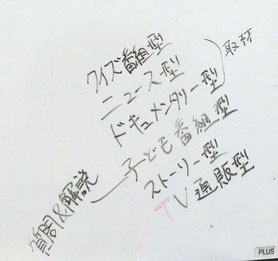 クイズ番組型
ニュース型
ドキュメンタリー型
取材
子ども番組型
ストーリー型
TV通販型
質問&解説
PLUS